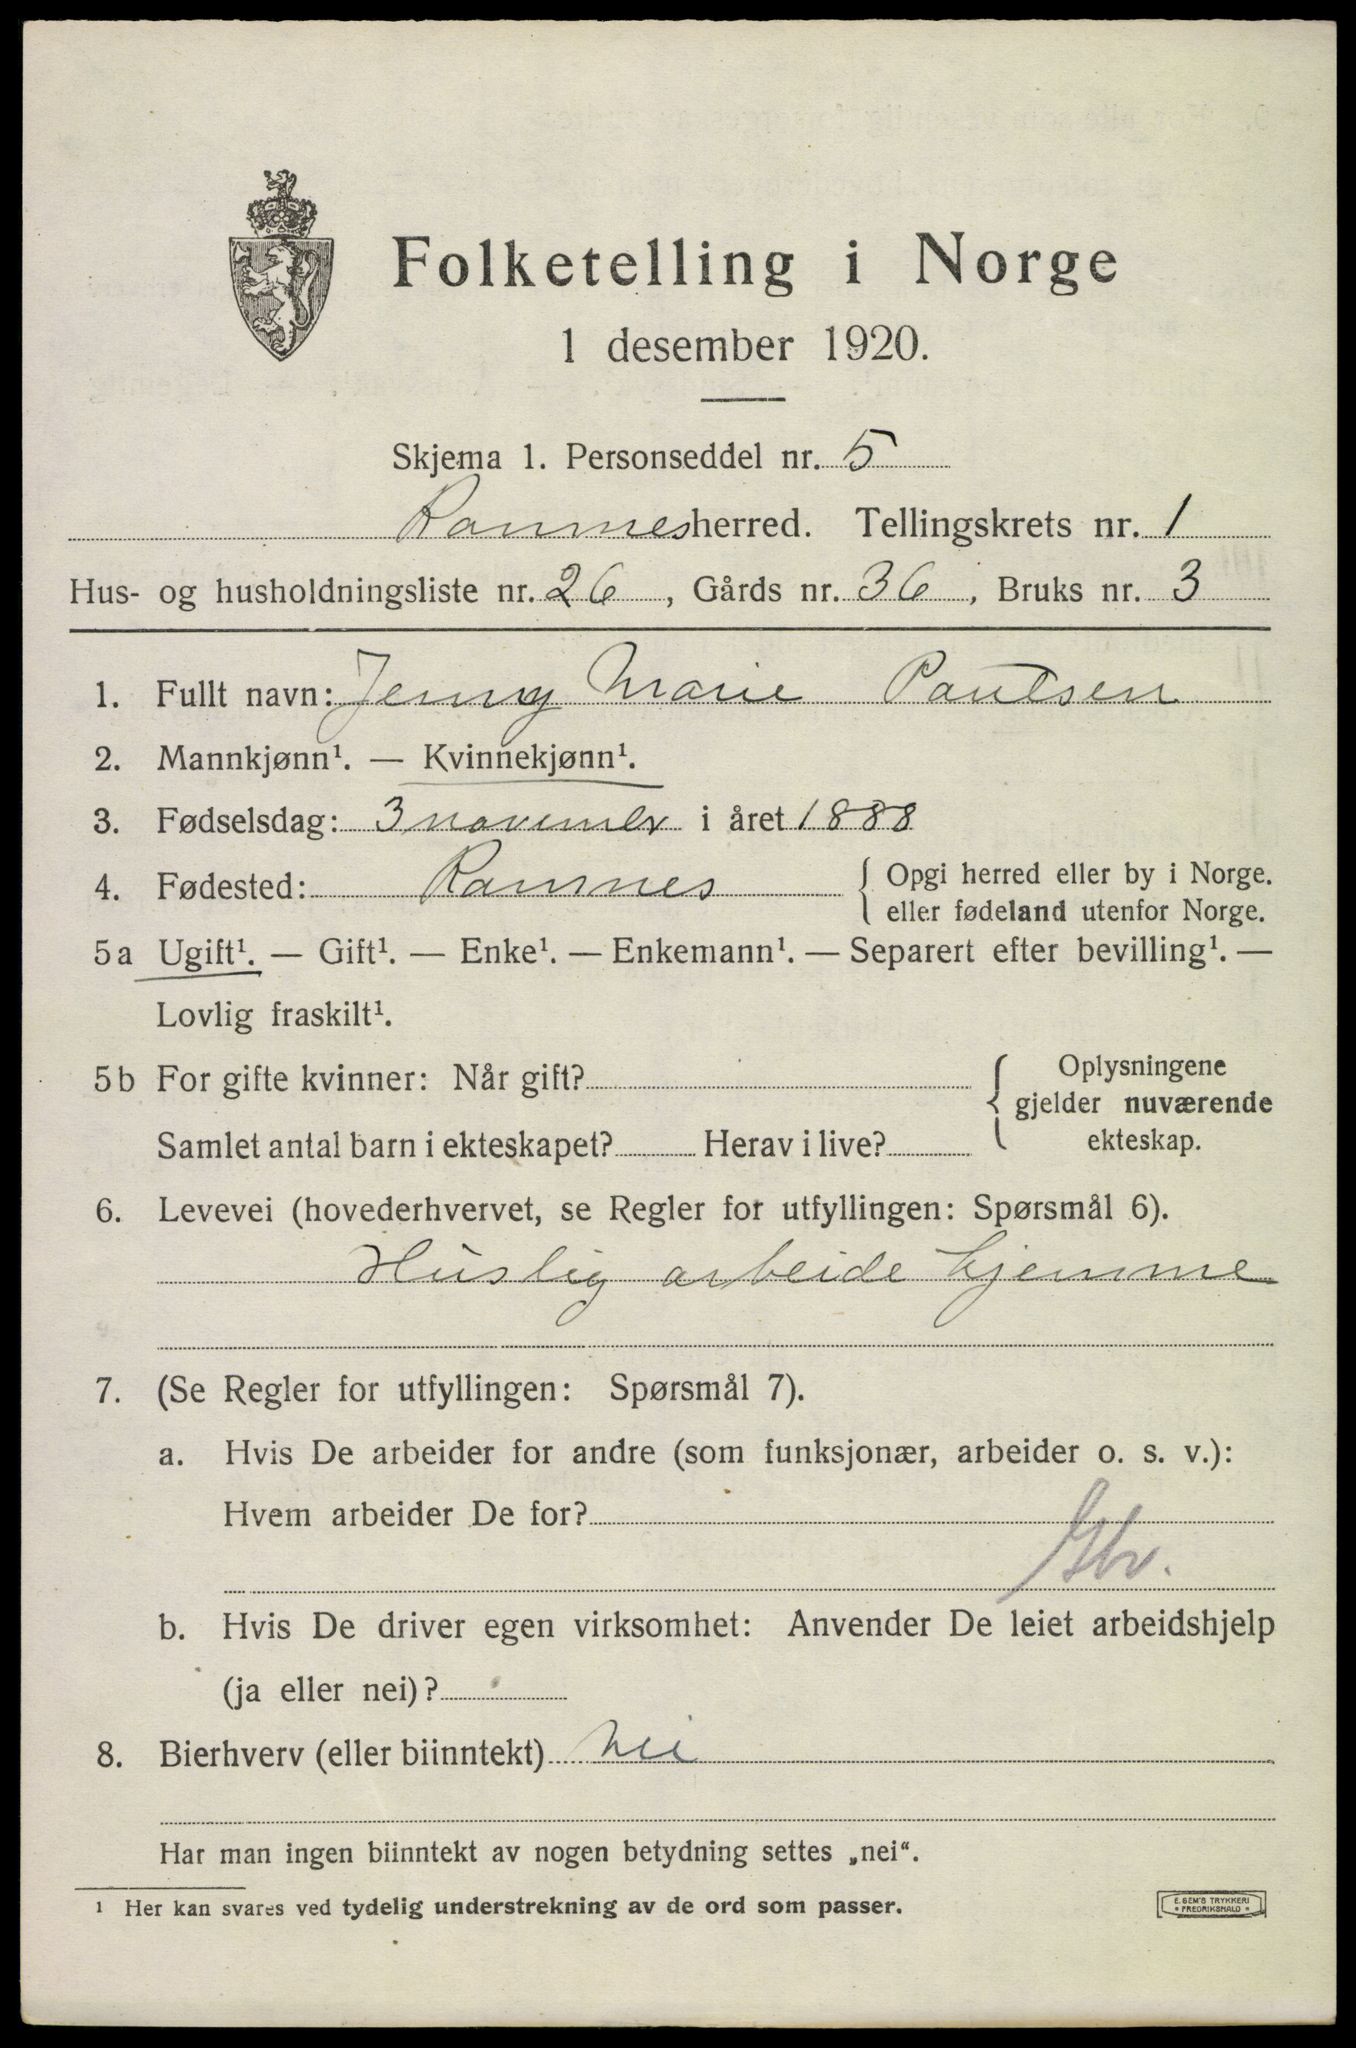 Folketelling i Norge
1 desember 1920.
Skjema 1. Personseddel nr. 5
Ramnes herred. Tellingskrets nr. 1
Hus- og husholdningsliste nr. 26, Gårds nr. 36, Bruks nr. 3
1. Fullt navn: Jenny Marie Paulsen
2. Mannkjønn¹. — Kvinnekjønn¹.
3. Fødselsdag: 3 november i året 1888
4. Fødested: Ramnes { Opgi herred eller by i Norge.
eller fødeland utenfor Norge.
5a Ugift¹. — Gift¹. — Enke¹. — Enkemann¹. — Separert efter bevilling¹. —
Lovlig fraskilt¹.
5b For gifte kvinner: Når gift? { Oplysningene
gjelder nuværende
Samlet antal barn i ekteskapet? Herav i live? ekteskap.
6. Levevei (hovederhvervet, se Regler for utfyllingen: Spørsmål 6).
Huslig arbeide hjemme
7. (Se Regler for utfyllingen: Spørsmål 7).
a. Hvis De arbeider for andre (som funksjonær, arbeider o. s. v.):
Hvem arbeider De for?
b. Hvis De driver egen virksomhet: Anvender De leiet arbeidshjelp
(ja eller nei)?
8. Bierhverv (eller biinntekt) Nei
Har man ingen biinntekt av nogen betydning settes „nei“.
¹ Her kan svares ved tydelig understrekning av de ord som passer.
E. SEM'S TRYKKERI
FREDRIKSHALD